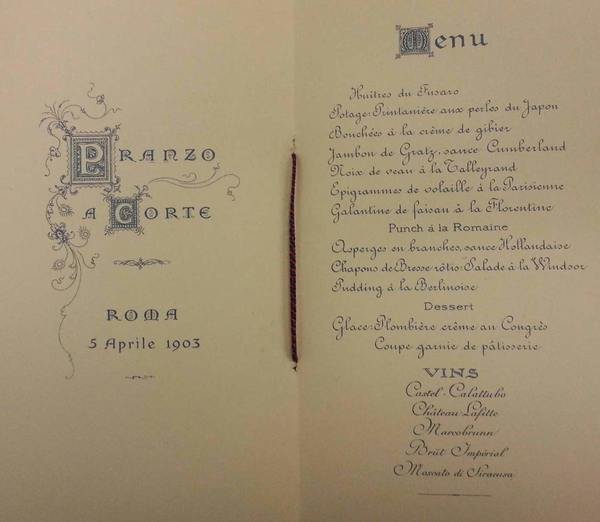 PRANZO
A CORTE
ROMA
5 Aprile 1903
Menu
Huîtres du Fusaro
Potage: Printanière aux perles du Japon
Bouchées à la crême de gibier
Jambon de Gratz, sauce Cumberland
Noix de veau à la Talleyrand
Epigrammes de volaille à la Parisienne
Galantine de faisan à la Florentine
Punch á la Romaine
Asperges en branches, sauce Hollandaise
Chapons de Bresse rôtis: Salade à la Windsor
Pudding á la Berlinoise
Dessert
Glace: Plombière crême au Congrès
Coupe garnie de pâtisserie
VINS
Castel-Calattubo
Château Lafitte
Marcobrunn
Brüt Impérial
Moscato di Siracusa